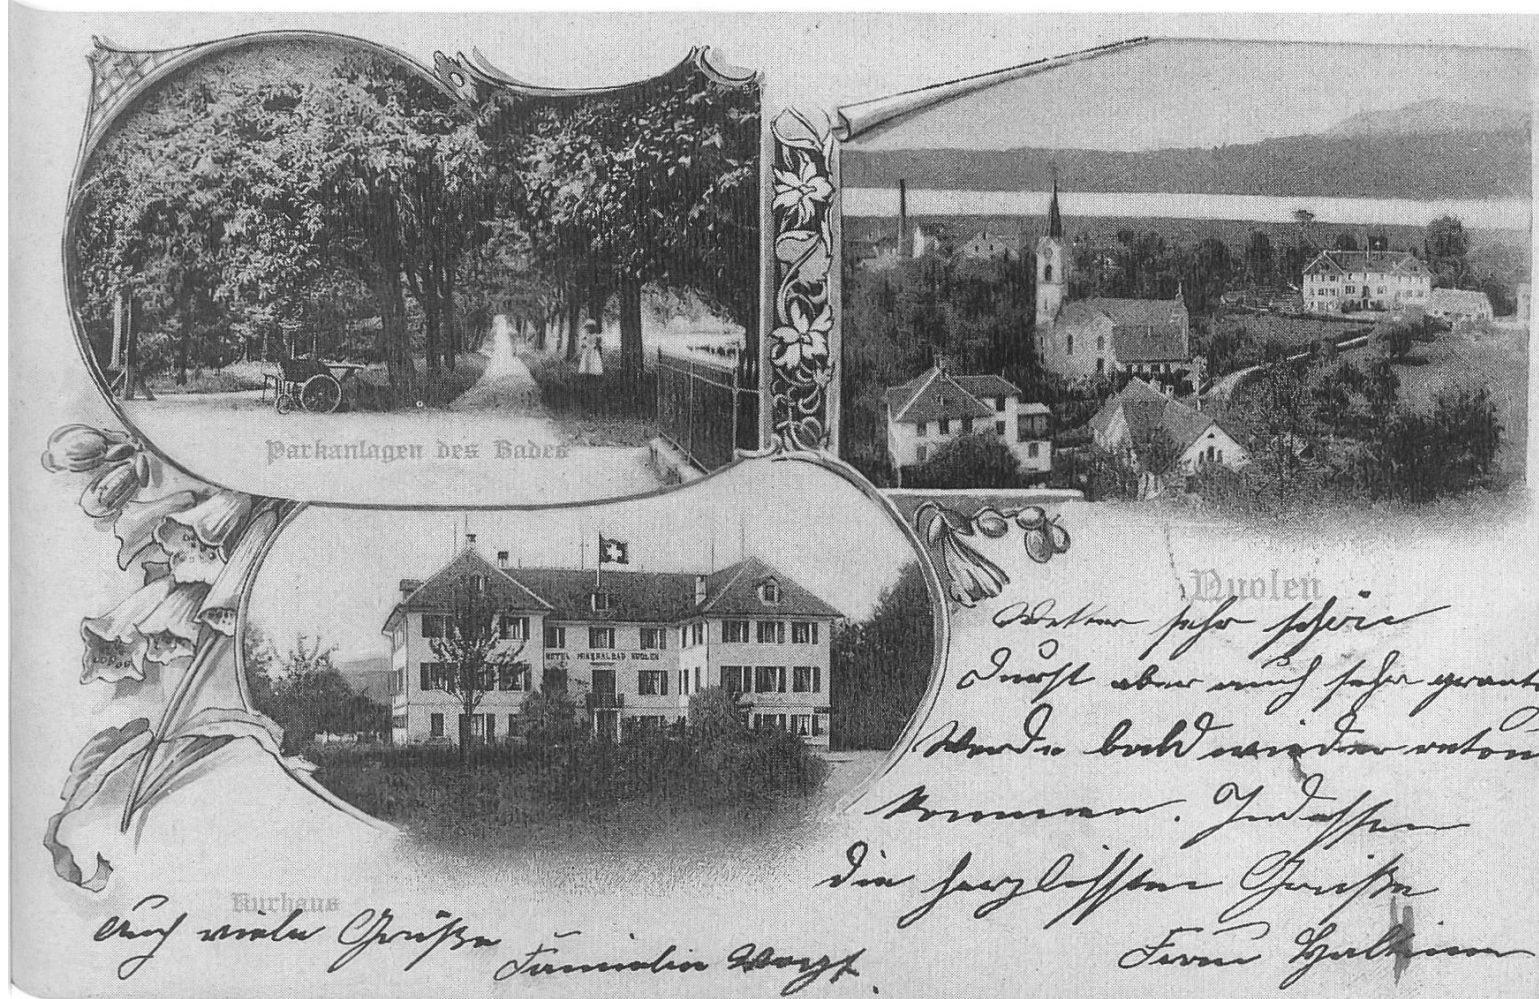 Parkanlagen des Bades
HOTEL MINERALBAD NUOLEN
Nuolen
Wetter sehr schön
Durst aber auch sehr
Werde bald wieder retour
kommen. Indessen
die herzlichsten Grüße
Frau
Kurhaus
Auch viele Grüße
Familie Vogt.